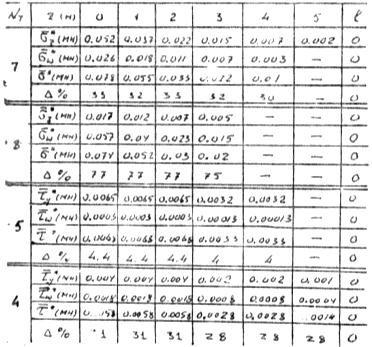 N_T z (м) 0 1 2 3 4 5 ℓ
7
σ̄_g* (мн) 0.052 0.037 0.022 0.015 0.007 0.002 0
σ̄_ω* (мн) 0.026 0.018 0.011 0.007 0.003 — 0
σ̄* (мн) 0.078 0.055 0.033 0.022 0.01 — 0
Δ % 33 32 33 32 30 — 0
8
σ̄_g* (мн) 0.017 0.012 0.007 0.005 — — 0
σ̄_ω* (мн) 0.057 0.04 0.023 0.015 — — 0
σ̄* (мн) 0.074 0.052 0.03 0.02 — — 0
Δ % 77 77 77 75 — — 0
5
τ̄_g* (мн) 0.0065 0.0065 0.0065 0.0032 0.0032 — 0
τ̄_ω* (мн) 0.0003 0.0003 0.0003 0.00013 0.00013 — 0
τ̄* (мн) 0.0068 0.0068 0.0068 0.0033 0.0033 — 0
Δ % 4.4 4.4 4.4 4 4 — 0
4
τ̄_g* (мн) 0.004 0.004 0.004 0.002 0.002 0.001 0
τ̄_ω* (мн) 0.0018 0.0018 0.0018 0.0008 0.0008 0.0004 0
τ̄* (мн) 0.0058 0.0058 0.0028 0.0028 0.0014 0
Δ % 31 31 28 28 28 0